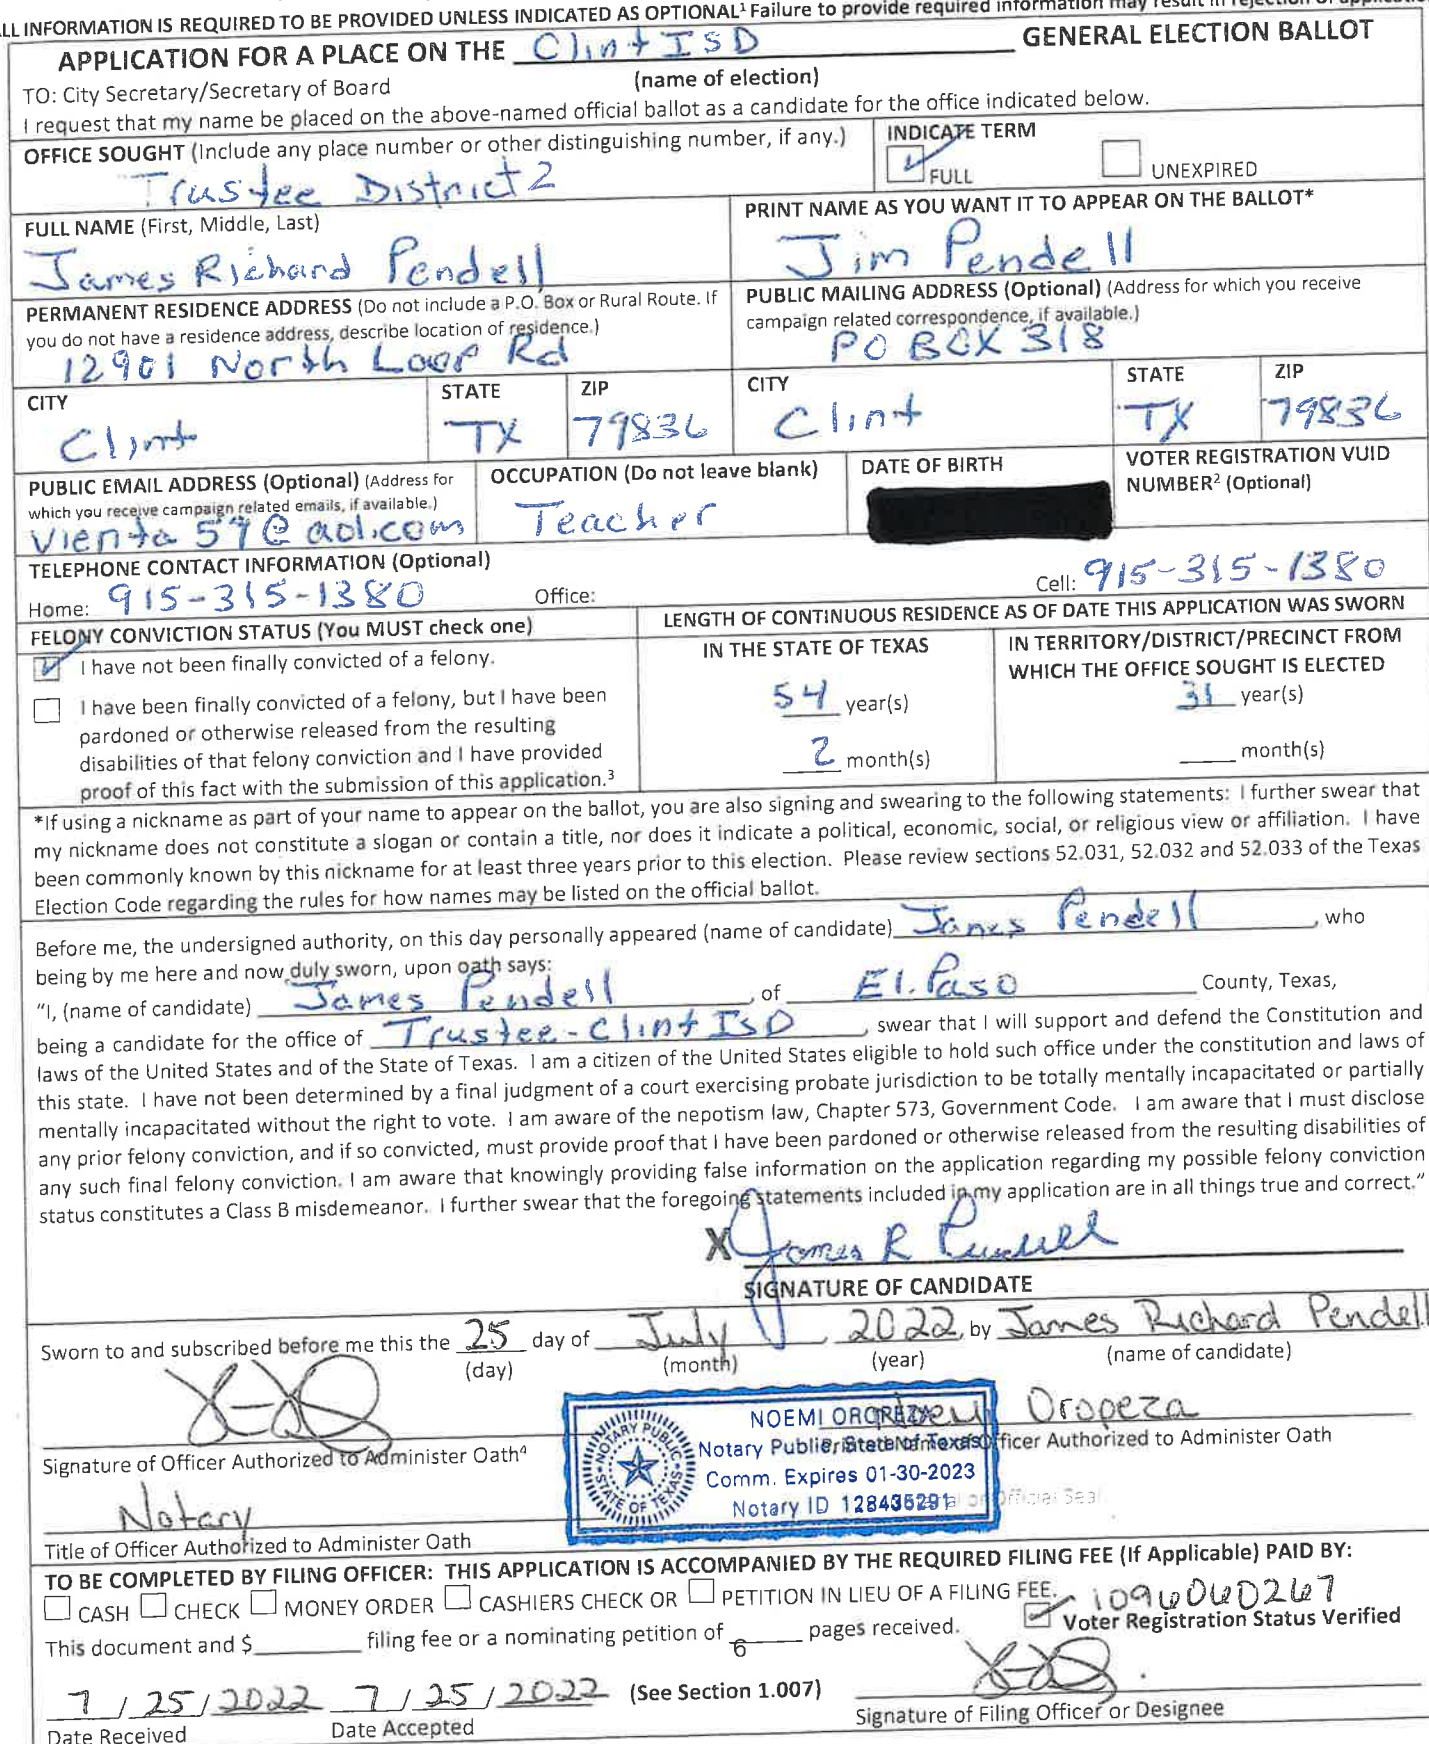 ALL INFORMATION IS REQUIRED TO BE PROVIDED UNLESS INDICATED AS OPTIONAL¹ Failure to provide required information may result in rejection of application.
APPLICATION FOR A PLACE ON THE Clint ISD GENERAL ELECTION BALLOT
(name of election)
TO: City Secretary/Secretary of Board
I request that my name be placed on the above-named official ballot as a candidate for the office indicated below.
OFFICE SOUGHT (Include any place number or other distinguishing number, if any.)
Trustee District 2
INDICATE TERM
FULL UNEXPIRED
FULL NAME (First, Middle, Last)
James Richard Pendell
PRINT NAME AS YOU WANT IT TO APPEAR ON THE BALLOT*
Jim Pendell
PERMANENT RESIDENCE ADDRESS (Do not include a P.O. Box or Rural Route. If
you do not have a residence address, describe location of residence.)
12901 North Loop Rd
PUBLIC MAILING ADDRESS (Optional) (Address for which you receive
campaign related correspondence, if available.)
PO BOX 318
CITY STATE ZIP
Clint TX 79836
CITY STATE ZIP
Clint TX 79836
PUBLIC EMAIL ADDRESS (Optional) (Address for
which you receive campaign related emails, if available.)
vienta59@aol.com
OCCUPATION (Do not leave blank)
Teacher
DATE OF BIRTH
VOTER REGISTRATION VUID
NUMBER² (Optional)
TELEPHONE CONTACT INFORMATION (Optional)
Home: 915-315-1380 Office: Cell: 915-315-1380
FELONY CONVICTION STATUS (You MUST check one)
I have not been finally convicted of a felony.
I have been finally convicted of a felony, but I have been
pardoned or otherwise released from the resulting
disabilities of that felony conviction and I have provided
proof of this fact with the submission of this application.³
LENGTH OF CONTINUOUS RESIDENCE AS OF DATE THIS APPLICATION WAS SWORN
IN THE STATE OF TEXAS
54 year(s)
2 month(s)
IN TERRITORY/DISTRICT/PRECINCT FROM
WHICH THE OFFICE SOUGHT IS ELECTED
31 year(s)
month(s)
*If using a nickname as part of your name to appear on the ballot, you are also signing and swearing to the following statements: I further swear that
my nickname does not constitute a slogan or contain a title, nor does it indicate a political, economic, social, or religious view or affiliation. I have
been commonly known by this nickname for at least three years prior to this election. Please review sections 52.031, 52.032 and 52.033 of the Texas
Election Code regarding the rules for how names may be listed on the official ballot.
Before me, the undersigned authority, on this day personally appeared (name of candidate) James Pendell, who
being by me here and now duly sworn, upon oath says:
"I, (name of candidate) James Pendell, of El. Paso County, Texas,
being a candidate for the office of Trustee - Clint ISD, swear that I will support and defend the Constitution and
laws of the United States and of the State of Texas. I am a citizen of the United States eligible to hold such office under the constitution and laws of
this state. I have not been determined by a final judgment of a court exercising probate jurisdiction to be totally mentally incapacitated or partially
mentally incapacitated without the right to vote. I am aware of the nepotism law, Chapter 573, Government Code. I am aware that I must disclose
any prior felony conviction, and if so convicted, must provide proof that I have been pardoned or otherwise released from the resulting disabilities of
any such final felony conviction. I am aware that knowingly providing false information on the application regarding my possible felony conviction
status constitutes a Class B misdemeanor. I further swear that the foregoing statements included in my application are in all things true and correct."
X James R Pendell
SIGNATURE OF CANDIDATE
Sworn to and subscribed before me this the 25 day of July, 2022, by James Richard Pendell
(day) (month) (year) (name of candidate)
Oropeza
Signature of Officer Authorized to Administer Oath⁴
Officer Authorized to Administer Oath
NOEMI OROPEZA
Notary Public, State of Texas
Comm. Expires 01-30-2023
Notary ID 128436291
NOTARY PUBLIC
STATE OF TEXAS
Official Seal
Notary
Title of Officer Authorized to Administer Oath
TO BE COMPLETED BY FILING OFFICER: THIS APPLICATION IS ACCOMPANIED BY THE REQUIRED FILING FEE (If Applicable) PAID BY:
CASH CHECK MONEY ORDER CASHIERS CHECK OR PETITION IN LIEU OF A FILING FEE.
1096060267
This document and $ filing fee or a nominating petition of 6 pages received.
Voter Registration Status Verified
7/25/2022 7/25/2022 (See Section 1.007)
Date Received Date Accepted Signature of Filing Officer or Designee